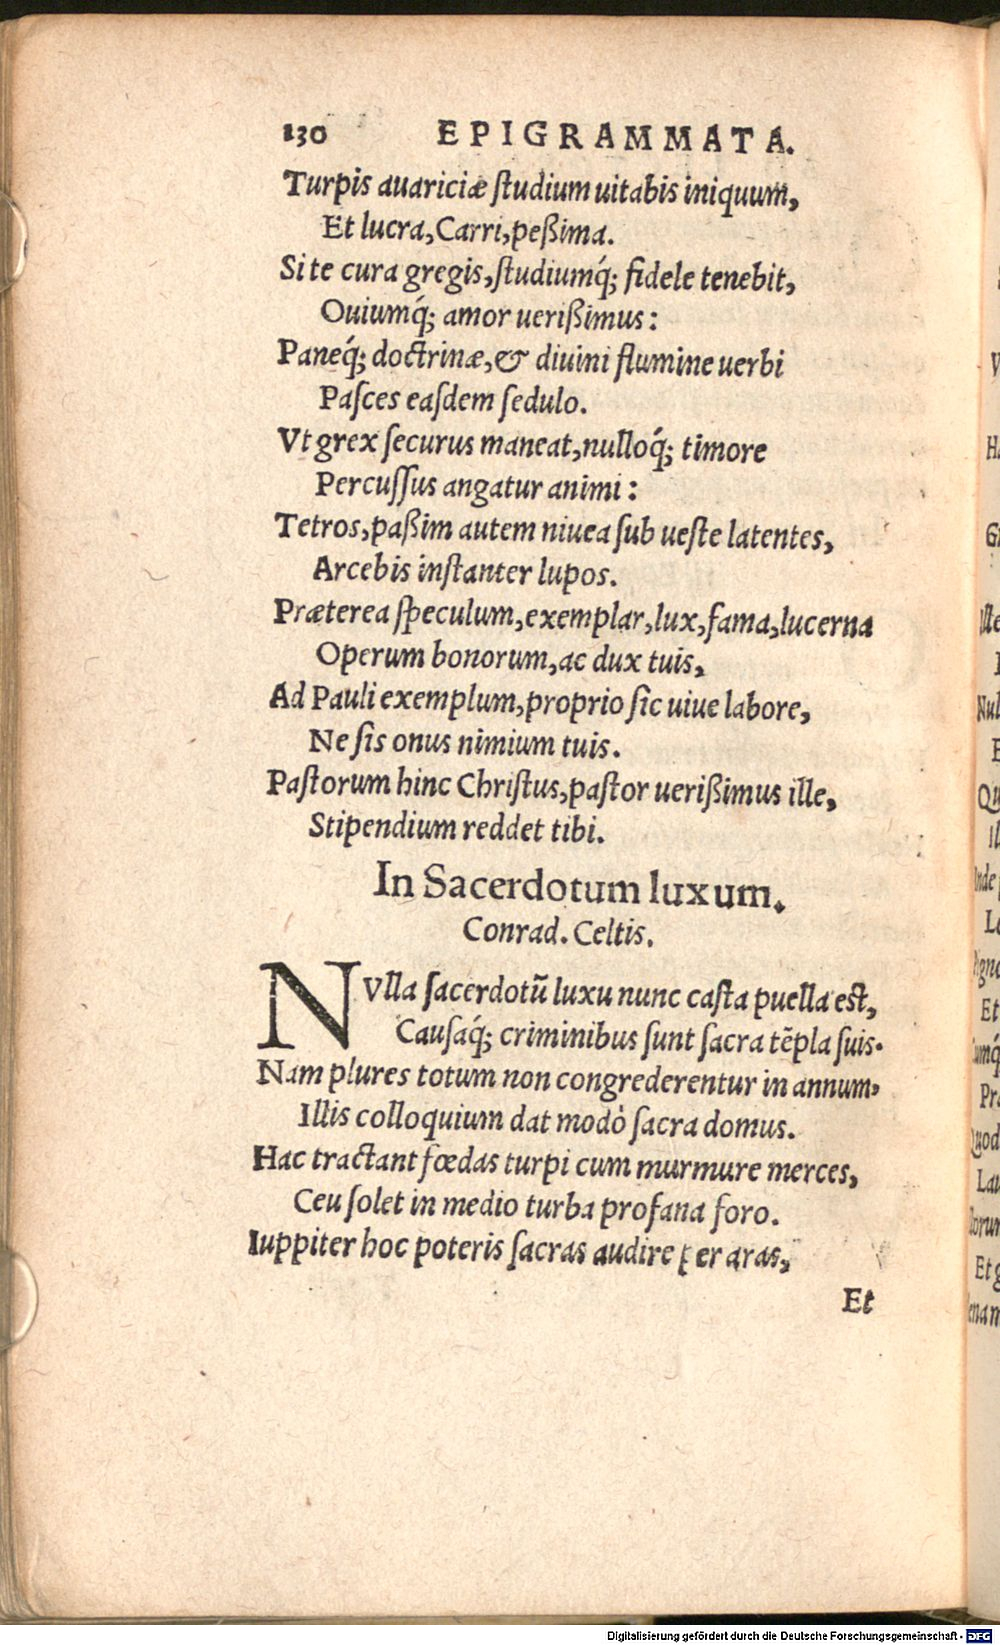 130 EPIGRAMMATA.
Turpis auariciæ ſtudium uitabis iniquum,
Et lucra, Carri, peßima.
Si te cura gregis, ſtudiumq́; fidele tenebit,
Ouiumq́; amor uerißimus:
Paneq́; doctrinæ, & diuini flumine uerbi
Paſces eaſdem ſedulo.
Vt grex ſecurus maneat, nulloq́; timore
Percuſſus angatur animi:
Tetros, paßim autem niuea ſub ueſte latentes,
Arcebis inſtanter lupos.
Præterea ſpeculum, exemplar, lux, fama, lucerna
Operum bonorum, ac dux tuis,
Ad Pauli exemplum, proprio ſic uiue labore,
Ne ſis onus nimium tuis.
Paſtorum hinc Chriſtus, paſtor uerißimus ille,
Stipendium reddet tibi.
In Sacerdotum luxum.
Conrad. Celtis.
NVlla ſacerdotũ luxu nunc caſta puella est,
Cauſaq́; criminibus ſunt ſacra tẽpla ſuis.
Nam plures totum non congrederentur in annum,
Illis colloquium dat modò ſacra domus.
Hac tractant fœdas turpi cum murmure merces,
Ceu ſolet in medio turba profana foro.
Iuppiter hoc poteris ſacras audire per aras,
Et
Digitalisierung gefördert durch die Deutsche Forschungsgemeinschaft - DFG